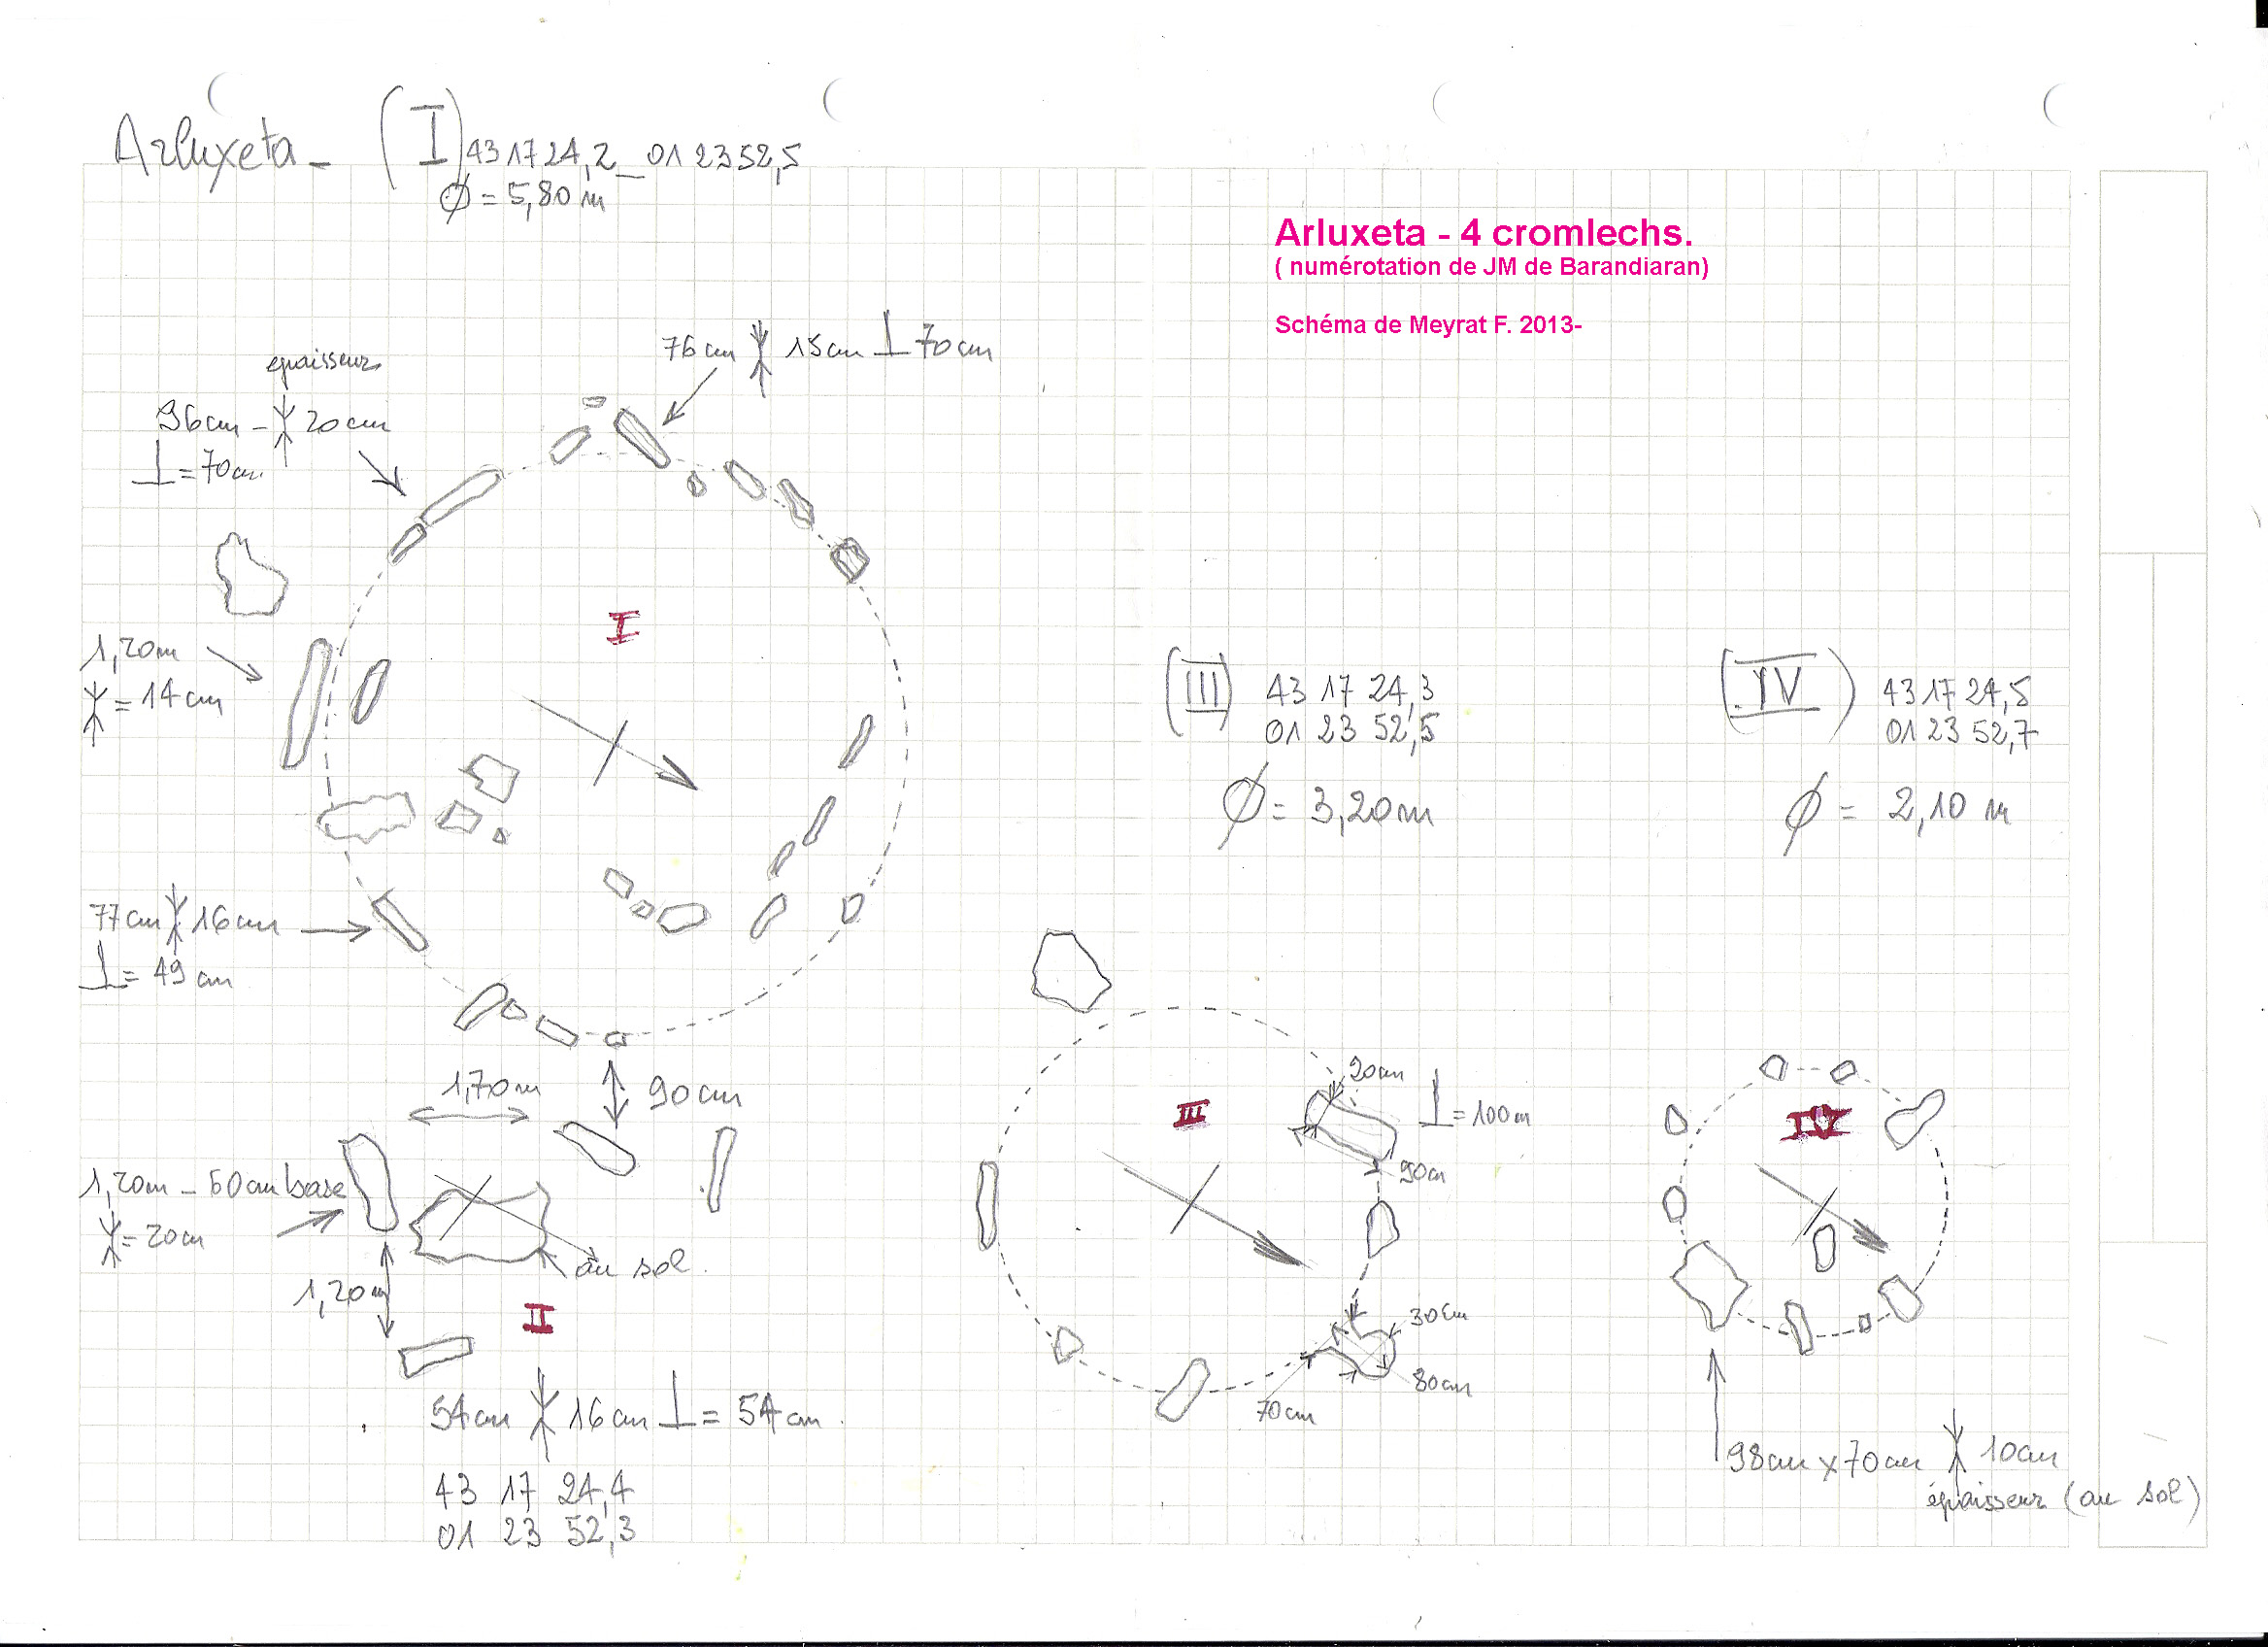 Arluxeta - (I) 43 17 24,2 _ 01 23 52,5
Ø = 5,80 m
Arluxeta - 4 cromlechs.
( numérotation de JM de Barandiaran)
Schéma de Meyrat F. 2013-
76 cm 15 cm ⊥ 70 cm
epaisseur
96 cm - 20 cm
⊥ = 70 cm.
I
1,20m
= 14 cm
77 cm 16 cm
⊥ = 49 cm
(III) 43 17 24,3
01 23 52,5
Ø = 3,20m
(IV) 43 17 24,5
01 23 52,7
Ø = 2,10 m
1,70m
90 cm
1,20m - 50 cm base
= 20 cm
au sol.
1,20m
II
54 cm 16 cm ⊥ = 54 cm.
43 17 24,4
01 23 52,3
20cm
⊥ = 100 m
III
90cm
30cm
80cm
70 cm
IV
98cm x 70 cm 10 cm
épaisseur (au sol)